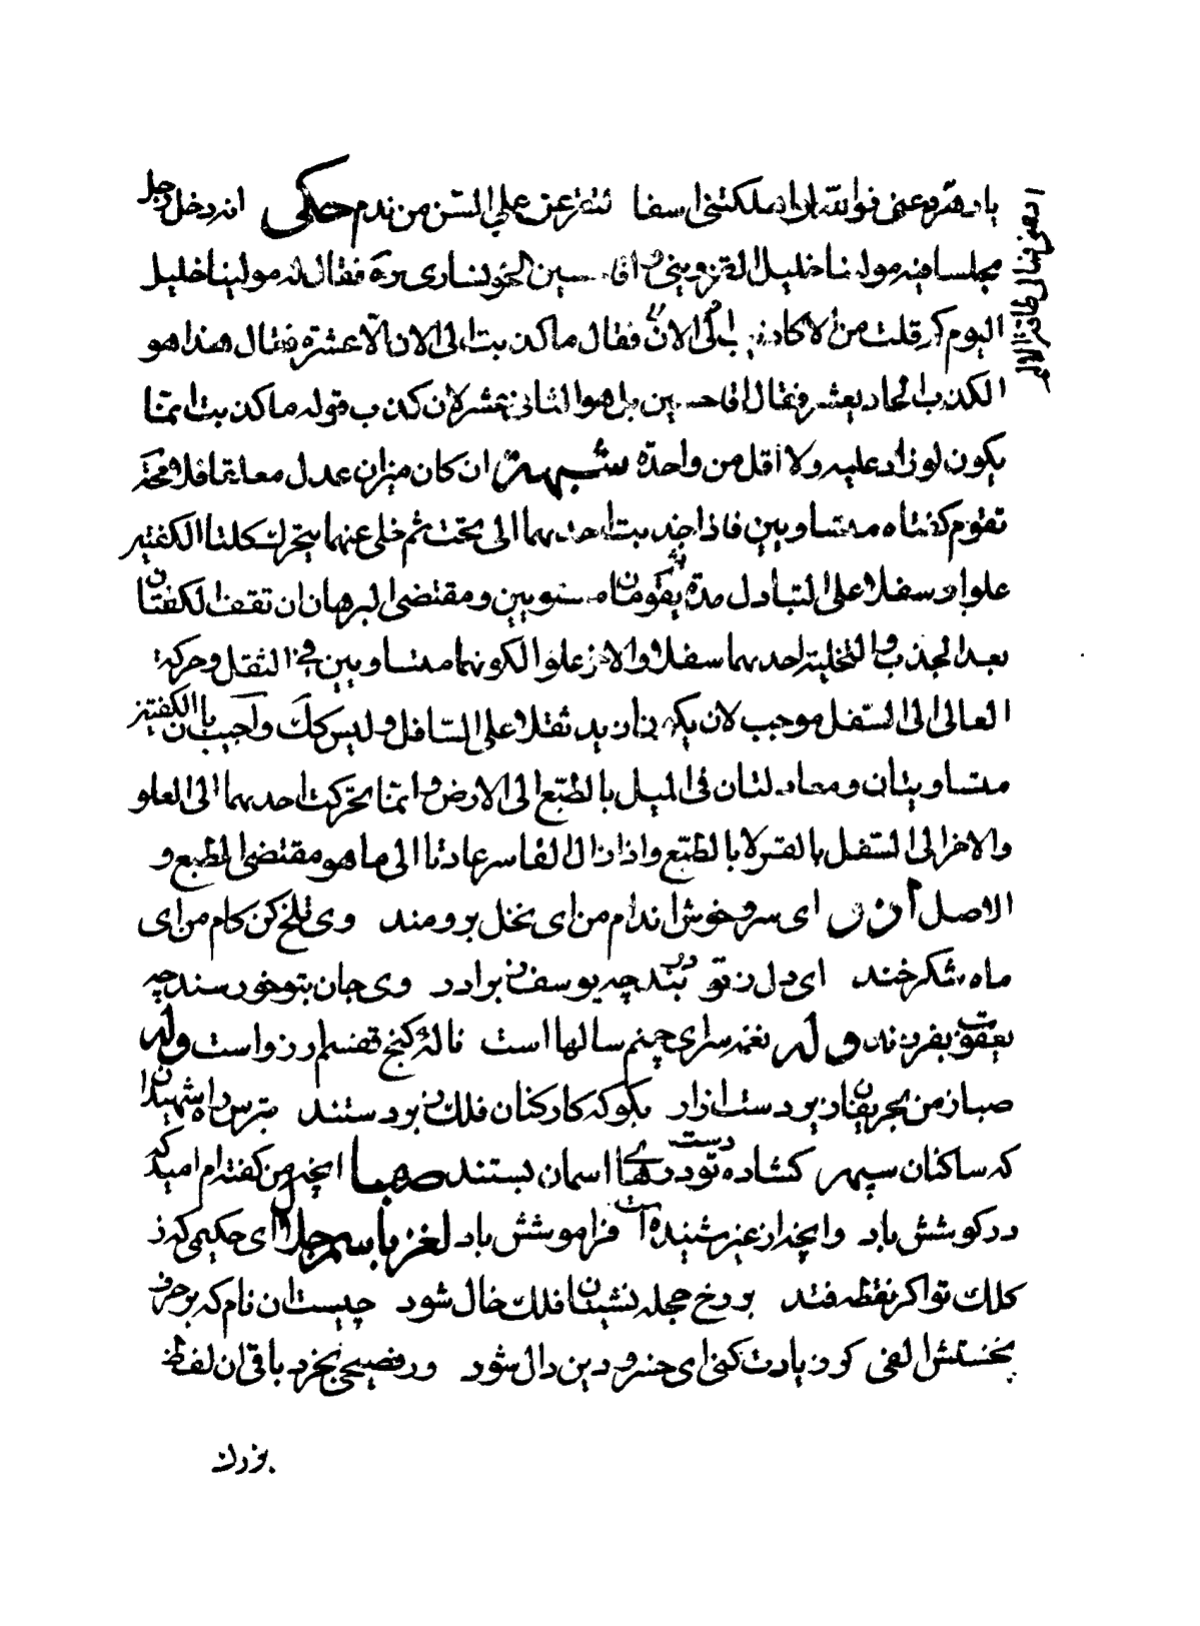 یا دهر دعنی فوالله ان اهلکتنی اسفا لتقرعن علی السن من ندم حکی انه دخل رجل
مجلسا فیه مولانا خلیل القزوینی و اقا حسین الخونساری ره فقال له مولینا خلیل
الیوم کم قلت من الاکاذیب الی الان فقال ما کذبت الی الان الا عشرة فقال هذا هو
الکذب الحادیعشر فقال اقا حسین بل هو الثانیعشر لان کذب قوله ما کذبت انما
یکون لو زاد علیه ولا اقل من واحدة شبهة ان کان میزان عدل معلقا فلا محة
تقوم کفتاه متساویین فاذا جذبت احدیهما الی تحت ثم خلی عنهما یتحرک کلتا الکفتین
علوا و سفلا علی التبادل مدة ثم یقومان مستویین و مقتضی البرهان ان تقف الکفتان
بعد الجذب والتخلیة احدیهما سفلا والاخر علوا لکونهما متساویین فی الثقل وحرکة
العالی الی السفل موجب لان یکون ازید ثقلا علی السافل ولیس کک واجیب بان الکفتین
متساویتان ومعادلتان فی المیل بالطبع الی الارض وانما تحرکت احدیهما الی العلو
والاخر الی السفل بالقسر لا بالطبع واذا زال القاسر عادتا الی ما هو مقتضی الطبع و
الاصل ای سرو خوش اندام من ای نخل برومند وی تلخ کن کام من ای
ماه شکرخند ای دل ز تو در بند چه یوسف ز برادر وی جان بتو خورسند چه
یعقوب بفرزند وله نغمه سرای چمنم سالها است نالهٔ کنج قفسم ارزواست وله
صبا ز من بحریفان زبردست ازار بکو که کارکنان فلک زبردستند بترس راه شهیدان
که ساکنان سپهر کشاده دست تو درهای اسمان بستند صهبا انچه من کفته‌ام امید که
در کوشش باد وانچه از غیر شنیده است فراموشش باد لغز باسم جلال ای حکیمی که ز
کلک تو اکر نقطه فتد بر رخ حجله نشینان فلک خال شود چیست ان نام که بر حرف
نخستش الفی کر زیادت کنی ای خسرو دین دال شود ور فصیحی بخرد باقی ان لفظ
بزرک